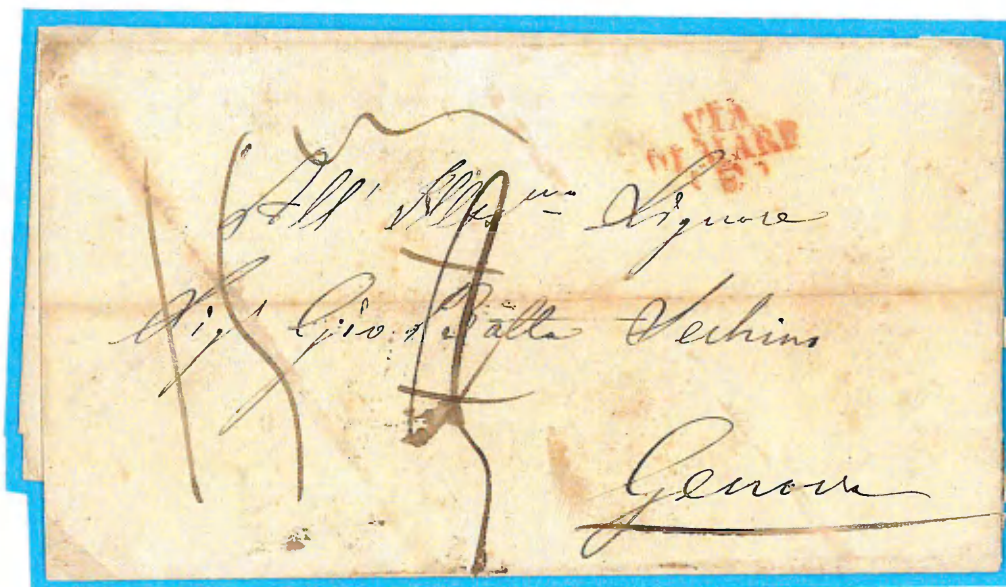 VIA
DI MARE
All' Ill.mo Signore
Sig.r Gio. Batta
Genova